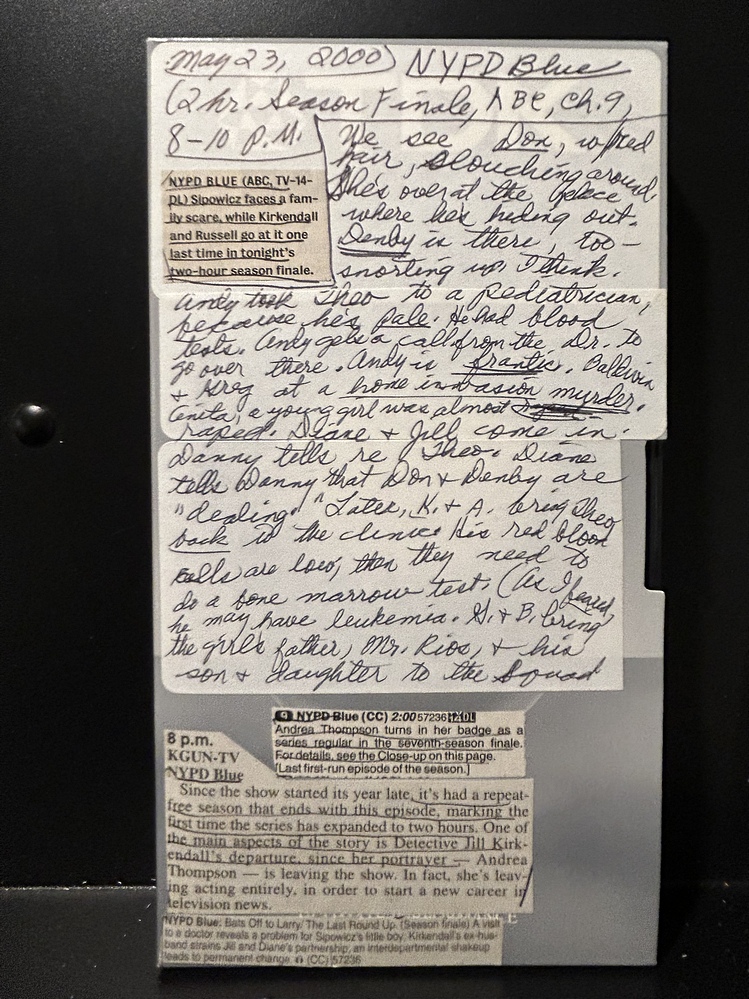 May 23, 2000) NYPD Blue
(2 hr. Season Finale, ABC, Ch. 9,
8-10 P.M.
We see Don, w/red
hair, slouching around
She's over at the place
where he's hiding out.
Denby is there, too -
snorting up, I think.
NYPD BLUE (ABC, TV-14-
DL) Sipowicz faces a fam-
ily scare, while Kirkendall
and Russell go at it one
last time in tonight's
two-hour season finale.
Andy took Theo to a pediatrician,
because he's pale. He had blood
tests. Andy gets a call from the Dr. to
go over there. Andy is frantic. Baldwin
& Greg at a home invasion murder.
Anita, a young girl was almost
raped. Diane & Jill come in.
Danny tells re Theo. Diane
tells Danny that Don & Denby are
"dealing." Later, K. & A. bring Theo
back to the clinic. His red blood
cells are low, then they need to
do a bone marrow test. (As I feared,
he may have leukemia. G. & B. bring
the girl's father, Mr. Rios, & his
son & daughter to the Squad
9 NYPD Blue (CC) 2:00 57236 14DL
Andrea Thompson turns in her badge as a
series regular in the seventh-season finale.
For details, see the Close-up on this page.
[Last first-run episode of the season.]
8 p.m.
KGUN-TV
NYPD Blue
Since the show started its year late, it's had a repeat-
free season that ends with this episode, marking the
first time the series has expanded to two hours. One of
the main aspects of the story is Detective Jill Kirk-
endall's departure, since her portrayer — Andrea
Thompson — is leaving the show. In fact, she's leav-
ing acting entirely, in order to start a new career in
television news.
NYPD Blue: Bats Off to Larry/The Last Round Up. (Season finale) A visit
to a doctor reveals a problem for Sipowicz's little boy; Kirkendall's ex-hus-
band strains Jill and Diane's partnership; an interdepartmental shakeup
leads to permanent change. (CC) 57236